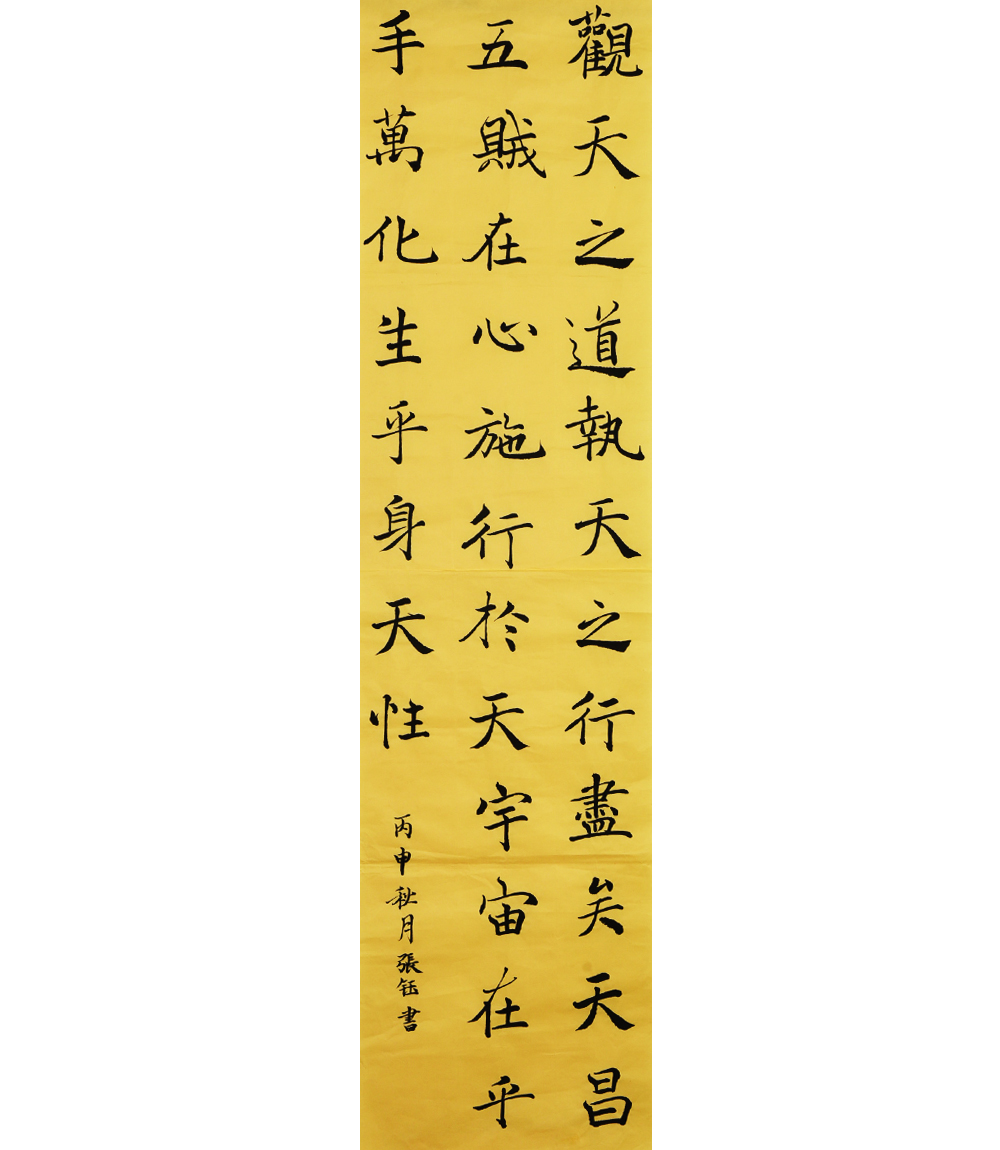 觀天之道執天之行盡矣天昌
五賊在心施行於天宇宙在乎
手萬化生乎身天性
丙申秋月張鈺書